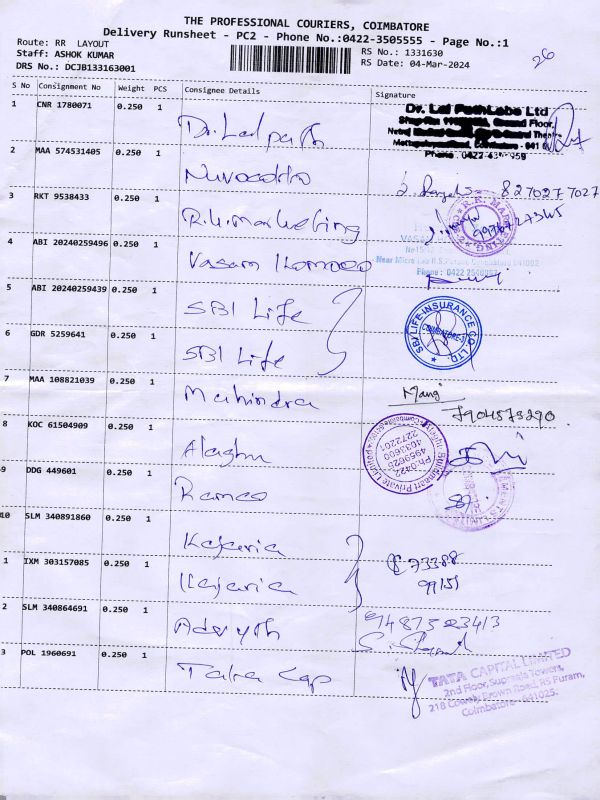 THE PROFESSIONAL COURIERS, COIMBATORE
Delivery Runsheet - PC2 - Phone No.:0422-3505555 - Page No.:1
Route: RR LAYOUT
Staff: ASHOK KUMAR
DRS No.: DCJB133163001
RS No.: 1331630
RS Date: 04-Mar-2024
26
S No Consignment No Weight PCS Consignee Details Signature
1 CNR 1780071 0.250 1 Dr. Lal path
Dr. Lal PathLabs Ltd
Ground Floor,
2 MAA 574531405 0.250 1
827027 7027
3 RKT 9538433 0.250 1 R.K. marketing
4 ABI 20240259496 0.250 1 Vasan
Phone : 0422
5 ABI 20240259439 0.250 1 SBI Life
SBI LIFE INSURANCE CO. LTD.
COIMBATORE
6 GDR 5259641 0.250 1 SBI Life
7 MAA 108821039 0.250 1 Mahindra
Mang
7904573290
8 KOC 61504909 0.250 1
Ph:0422
4959625
4033600
2272201
9 DDG 449601 0.250 1 Ramco
10 SLM 340891860 0.250 1 Kajaria
73388
99151
1 IXM 303157085 0.250 1 Kajaria
2 SLM 340864691 0.250 1
9487523413
3 POL 1960691 0.250 1 Tata Cap
TATA CAPITAL LIMITED
2nd Floor, Supraja Towers,
218 Cowly Brown Road, RS Puram,
Coimbatore - 641025.